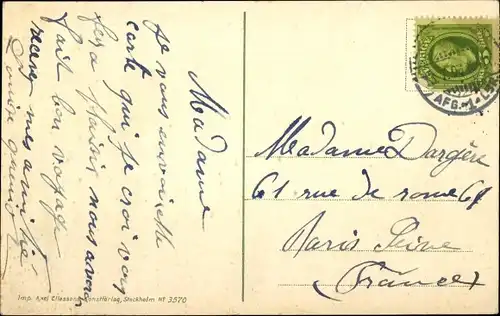 Madame
je vous envoi cette
carte qui je croi vous
fera plaisir nous avons
fait bon voyage
recever mes amitié
Louise
Madame Dargère
61 rue de rome 61
Paris Seine
(France)
AFG.
Imp. Axel Eliassons Konstförlag, Stockholm Nº 3570